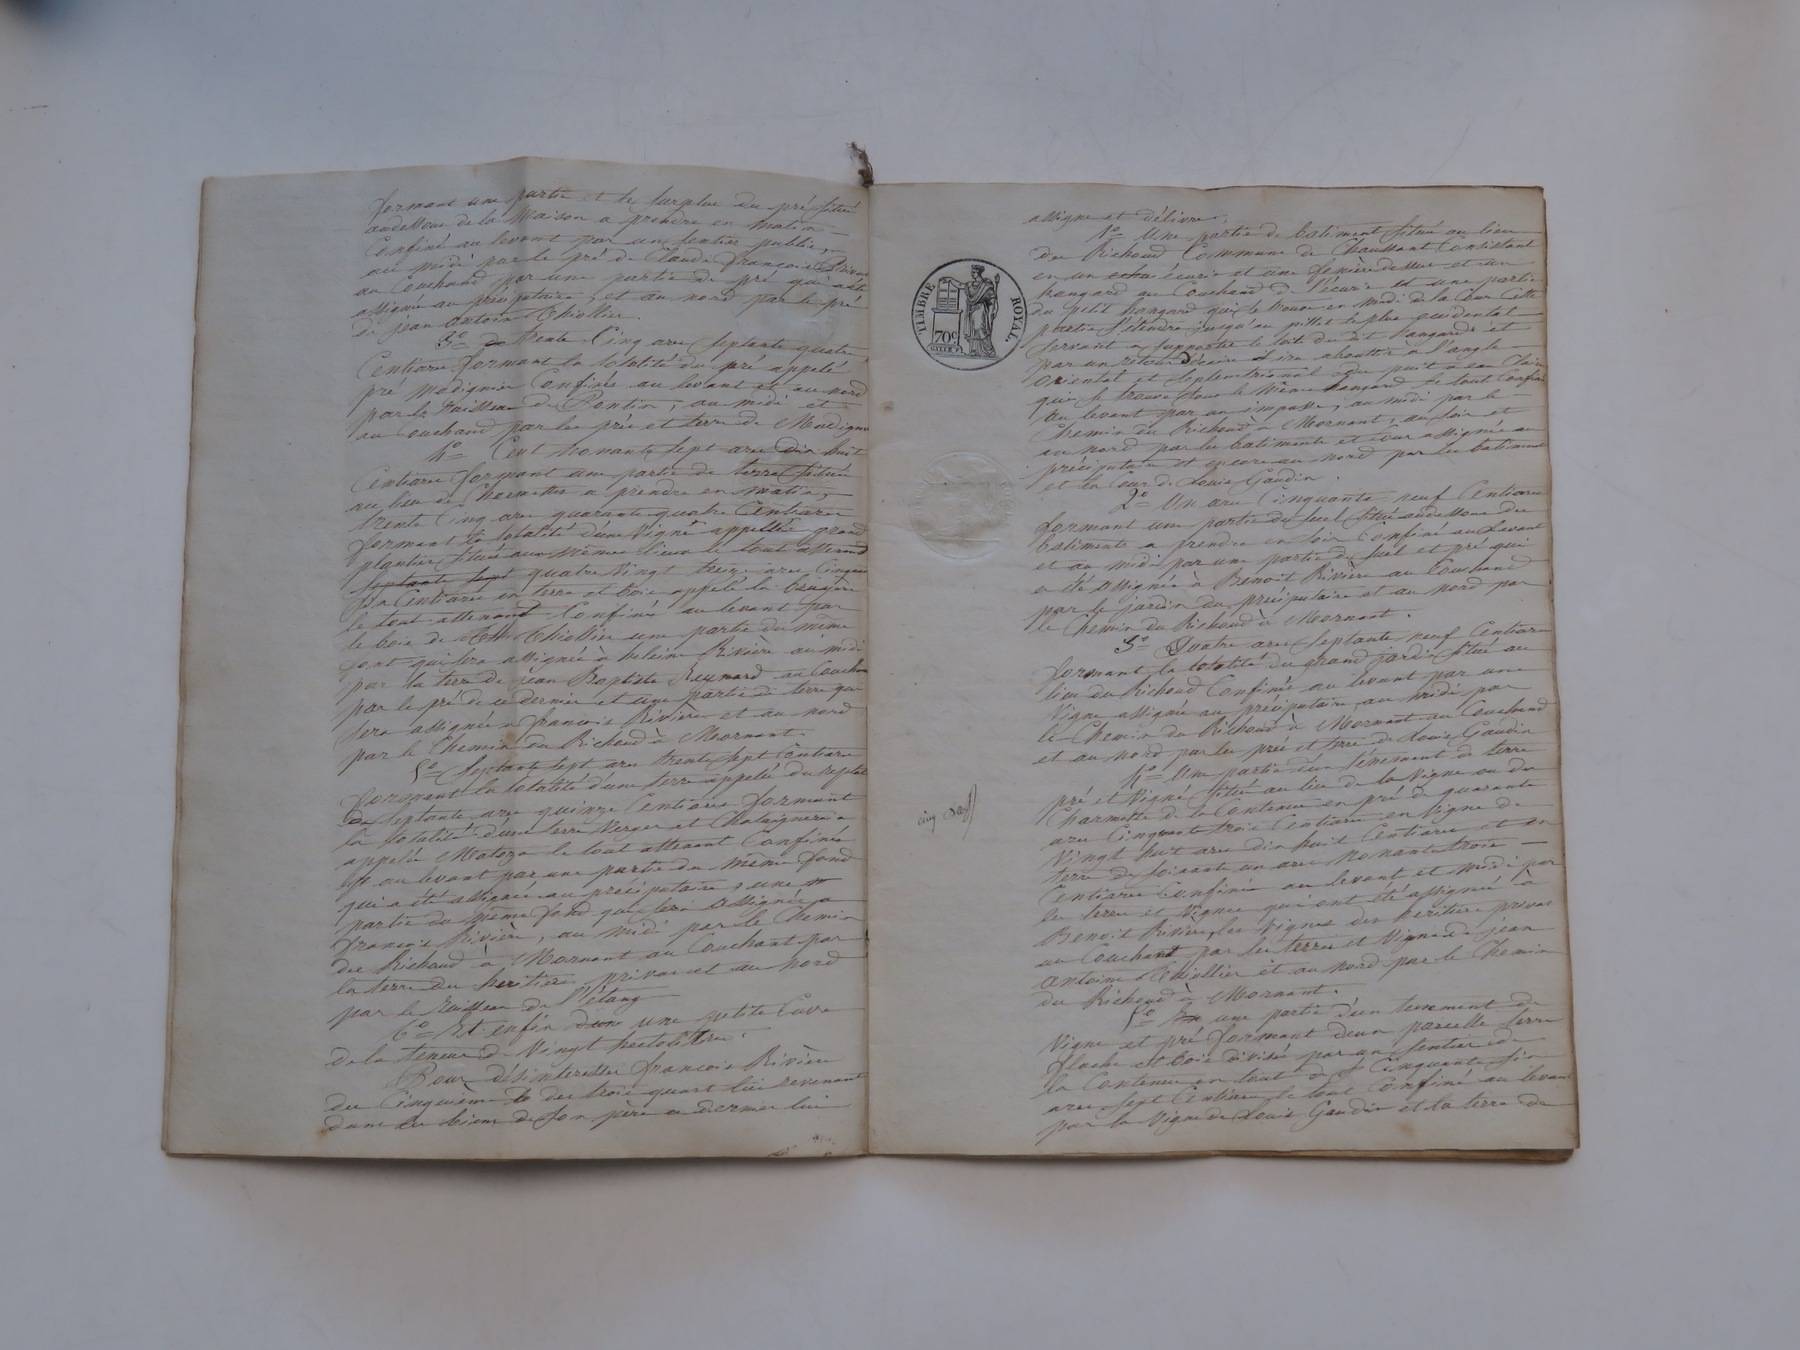 formant une partie et le surplus du pré situé
audessous de la Maison a prendre en matin
Confiné au levant par un sentier public,
au midi par le pré de Claude françois
au Couchand par une partie de pré qui a été
assignée au préciputaire, et au nord par le pré
de jean antoine Thiollier.
3º trente Cinq ares Septante quatre
Centiares formant la totalité du pré appelé
pré Madignier Confiné au levant et au nord
par le Ruisseau de Pontin, au midi et
au Couchand par les prés et terre de
4º Cent Novante sept ares dix huit
Centiares formant une partie de terre située
au lieu de Charmettes a prendre en matin,
trente Cinq ares quarante quatre Centiares
formant la totalité d'une Vigne appellée grand
plantier située au même lieu le tout attenand
septante sept quatre Vingt treize ares Cinquante
six Centiares en terre et bois appelé la
le tout attenand Confiné au levant par
le bois de Thiollier une partie du même
font qui sera assignée à heleine Rivière au midi
par la terre de jean Baptiste Reymard au Couchand
par le pré de ce dernier et une partie de terre qui
sera assignée a françois Rivière et au nord
par le Chemin du Richoud à Mornant.
5º Septante sept ares trente sept Centiares
formant la totalité d'une terre appelée du
De septante ares quinze Centiares formant
la totalité d'une terre Verger et Chataigneraie
appelée le tout attenant Confiné
au levant par une partie du même fond
qui a été assignée au préciputaire, une
partie du même fond qui sera assignée a
françois Rivière, au midi par le Chemin
du Richoud à Mornant au Couchant par
la terre des heritiers privas et au nord
par le Ruisseau de l'étang
6º Et enfin d'un une petite Cuve
de la teneur de Vingt hectolitres.
Pour désinteresser françois Rivière
du Cinquième des trois quart lui revenant
dans les biens de son père ce dernier lui
assigne et délivre.
TIMBRE ROYAL
70c
1º Une partie de batiment situé au lieu
du Richoud Commune de Chaussant Consistant
en un écurie et une fenière dessus et un
hangard au Couchand de l'écurie et une partie
du petit hangard qui se trouve en midi de la Cour Cette
partie s'étendra jusqu'au pillier le plus occidental
servant a supporter le toit du dit hangard et
par un retour d'écaire ira aboutir à l'angle
Oriental et Septentrional du puit à eau Claire
qui se trouve sous le même hangard le tout Confiné
au levant par un impasse, au midi par le
Chemin du Richoud à Mornant, au soir et
au nord par les batiments et Cour assignés au
préciputaire et encore au nord par les batiments
et la Cour de Louis Gaudin.
2º Un are Cinquante neuf Centiares
formant une partie du suel situé audessous des
batiments a prendre en soir Confiné au Levant
et au midi par une partie de suel et pré qui
a été assignée à Benoit Rivière au Couchand
par le jardin du préciputaire et au nord par
le Chemin du Richoud à Mornant.
3º Quatre ares Septante neuf Centiares
formant la totalité du grand jardin situé au
lieu du Richoud Confiné au levant par une
Vigne assignée au préciputaire, au midi par
le Chemin du Richoud à Mornant au Couchand
et au nord par les prés et terre de Louis Gaudin
4º Une partie d'un tènement de terre
pré et Vigne situé au lieu de la Vigne ou du
Charmette de la Contenue en pré de quarante
ares Cinquante trois Centiares en Vigne de
Vingt huit ares dix huit Centiares et en
terre de soixante un ares Novante trois
Centiares Confiné au levant et midi par
les terres et Vignes qui ont été assignées à
Benoit Rivière, les Vignes des heritiers privas
au Couchant par les terres et Vignes de jean
Antoine Thiollier et au nord par le Chemin
du Richoud à Mornant.
5º une partie d'un tenement de
Vigne et pré formant deux parcelle terre
flache et bois divisés par un sentier de
la Contenue en tout de Cinquante six
ares sept Centiares le tout Confiné au levant
par la Vigne de Louis Gaudin et la terre de